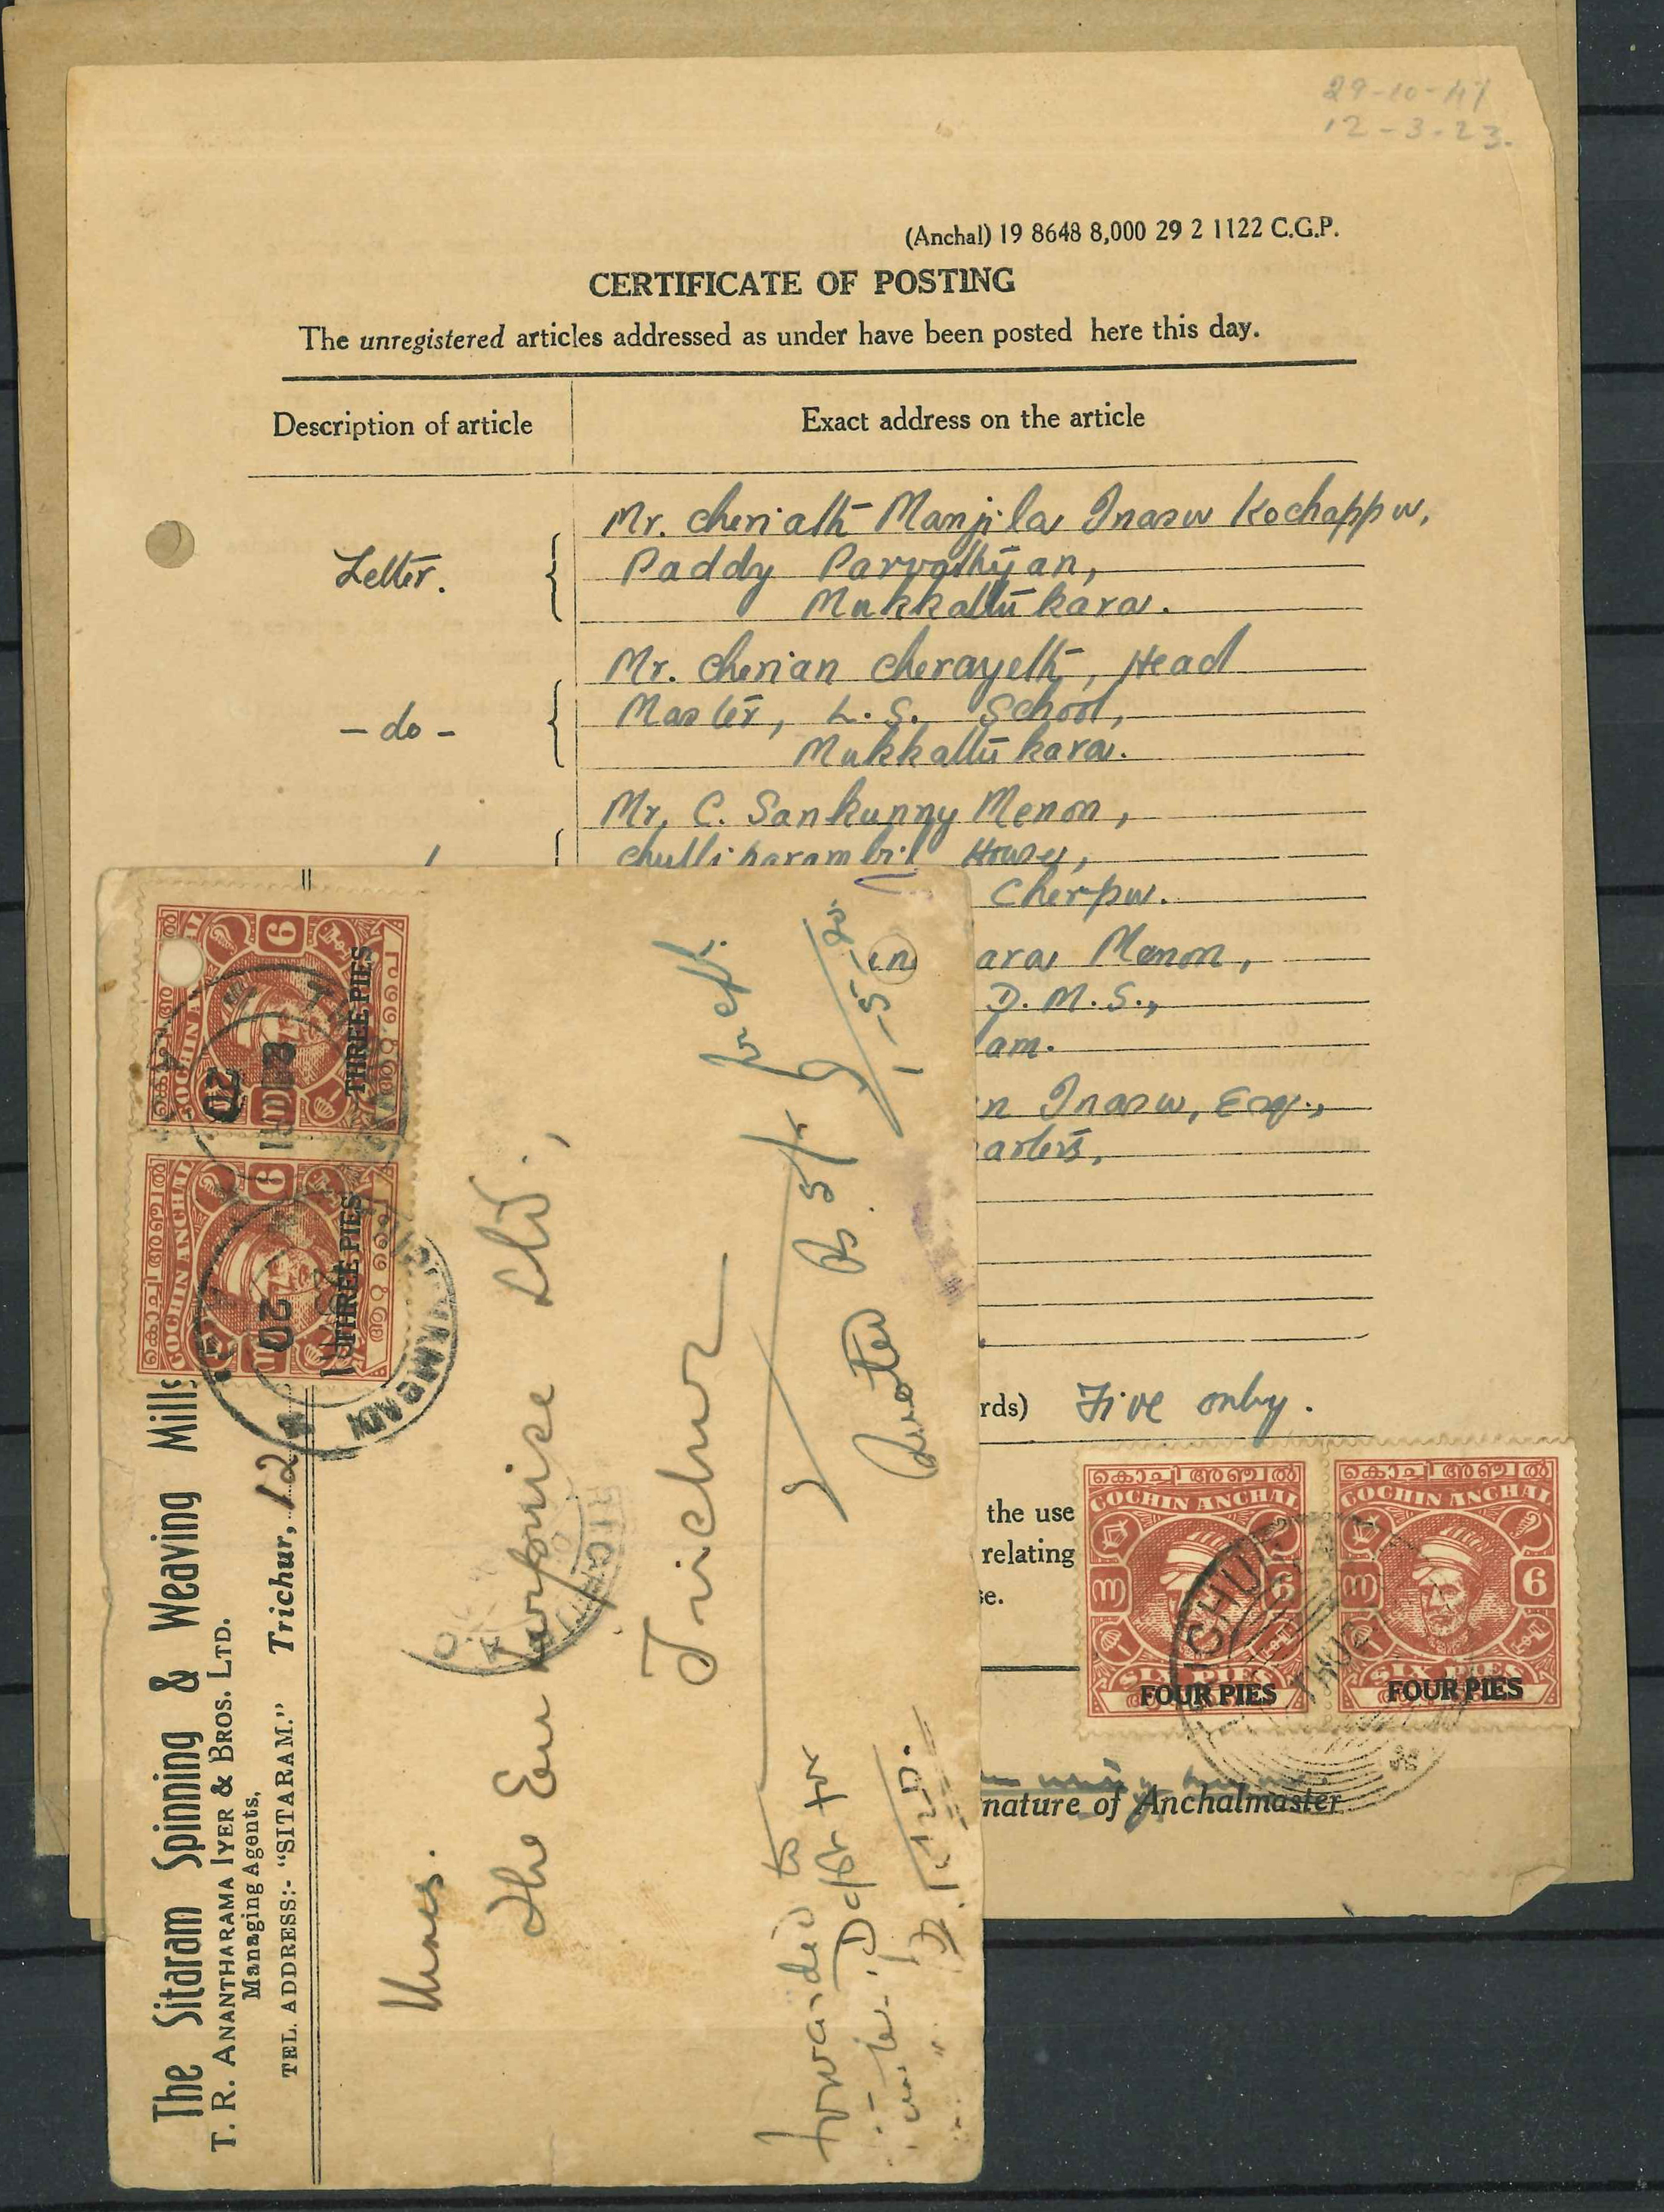 29-10-47
12-3-23.
(Anchal) 19 8648 8,000 29 2 1122 C.G.P.
CERTIFICATE OF POSTING
The unregistered articles addressed as under have been posted here this day.
Description of article
Exact address on the article
Letter.
Mr. Cheriath Manjila Inasu Kochappu,
Paddy Parvathyan,
Mukkattukara.
- do -
Mr. Cherian Cherayeth, Head
Master, L. S. School,
Mukkattukara.
Mr. C. Sankunny Menon,
Chulliparambil House,
Cherpu.
ara Menon,
D. M. S.,
lam.
n Inasu, Esq.,
arters,
rds) Five only.
the use
relating
se.
nature of Anchalmaster
കൊച്ചി അഞ്ചൽ
COCHIN ANCHAL
6
SIX PIES
FOUR PIES
കൊച്ചി അഞ്ചൽ
COCHIN ANCHAL
6
SIX PIES
FOUR PIES
ICHU
The Sitaram Spinning & Weaving Mills
T. R. ANANTHARAMA IYER & BROS. LTD.
Managing Agents,
TEL. ADDRESS:- "SITARAM." Trichur, 12
കൊച്ചി അഞ്ചൽ
COCHIN ANCHAL
6
THREE PIES
കൊച്ചി അഞ്ചൽ
COCHIN ANCHAL
6
THREE PIES
20
20
Mrs.
The Enterprise Ltd.,
Trichur
Forwarded to
Quoted Rs. 5/-
1-5-20